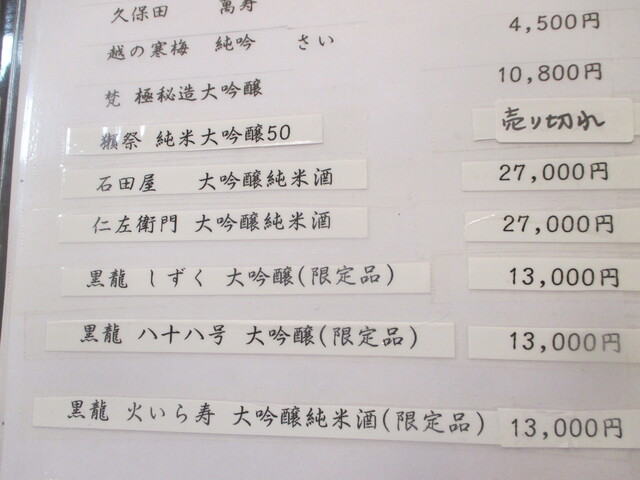 久保田 萬寿
越の寒梅 純吟 さい 4,500円
梵 極秘造大吟醸 10,800円
獺祭 純米大吟醸50 売り切れ
石田屋 大吟醸純米酒 27,000円
仁左衛門 大吟醸純米酒 27,000円
黒龍 しずく 大吟醸(限定品) 13,000円
黒龍 八十八号 大吟醸(限定品) 13,000円
黒龍 火いら寿 大吟醸純米酒(限定品) 13,000円